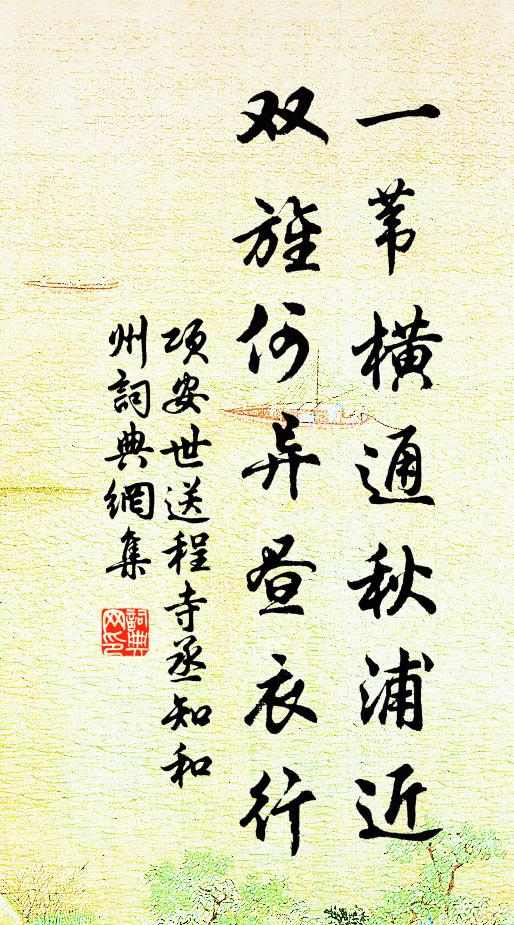 一苇横通秋浦近
双旌何异昼衣行
项安世送程寺丞知和
州詞典網集
詞典
网印